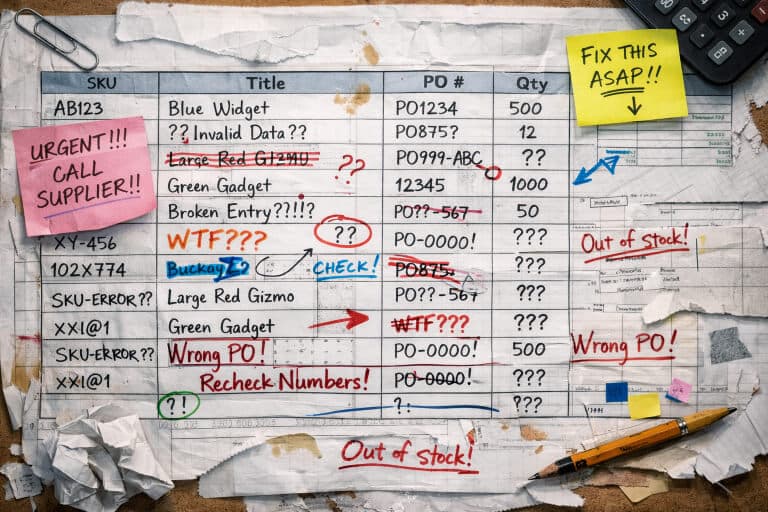 FIX THIS
ASAP!!
SKU Title PO # Qty
AB123 Blue Widget PO1234 500
URGENT!!!
CALL
SUPPLIER!!
?? Invalid Data?? PO875? 12
Large Red GIZMU ?? PO999-ABC ??
Green Gadget 12345 1000
Broken Entry??!!? PO??-567 50
XY-456 WTF??? ?? PO-0000! ???
Out of Stock!
102X774 CHECK! PO875 ???
SKU-ERROR?? Large Red Gizmo PO??-567 ???
XXI@1 Green Gadget WTF??? ???
SKU-ERROR?? Wrong PO! PO-0000! 500 Wrong PO!
XXI@1 Recheck Numbers! PO-0000! ???
?! ?: ???
Out of stock!